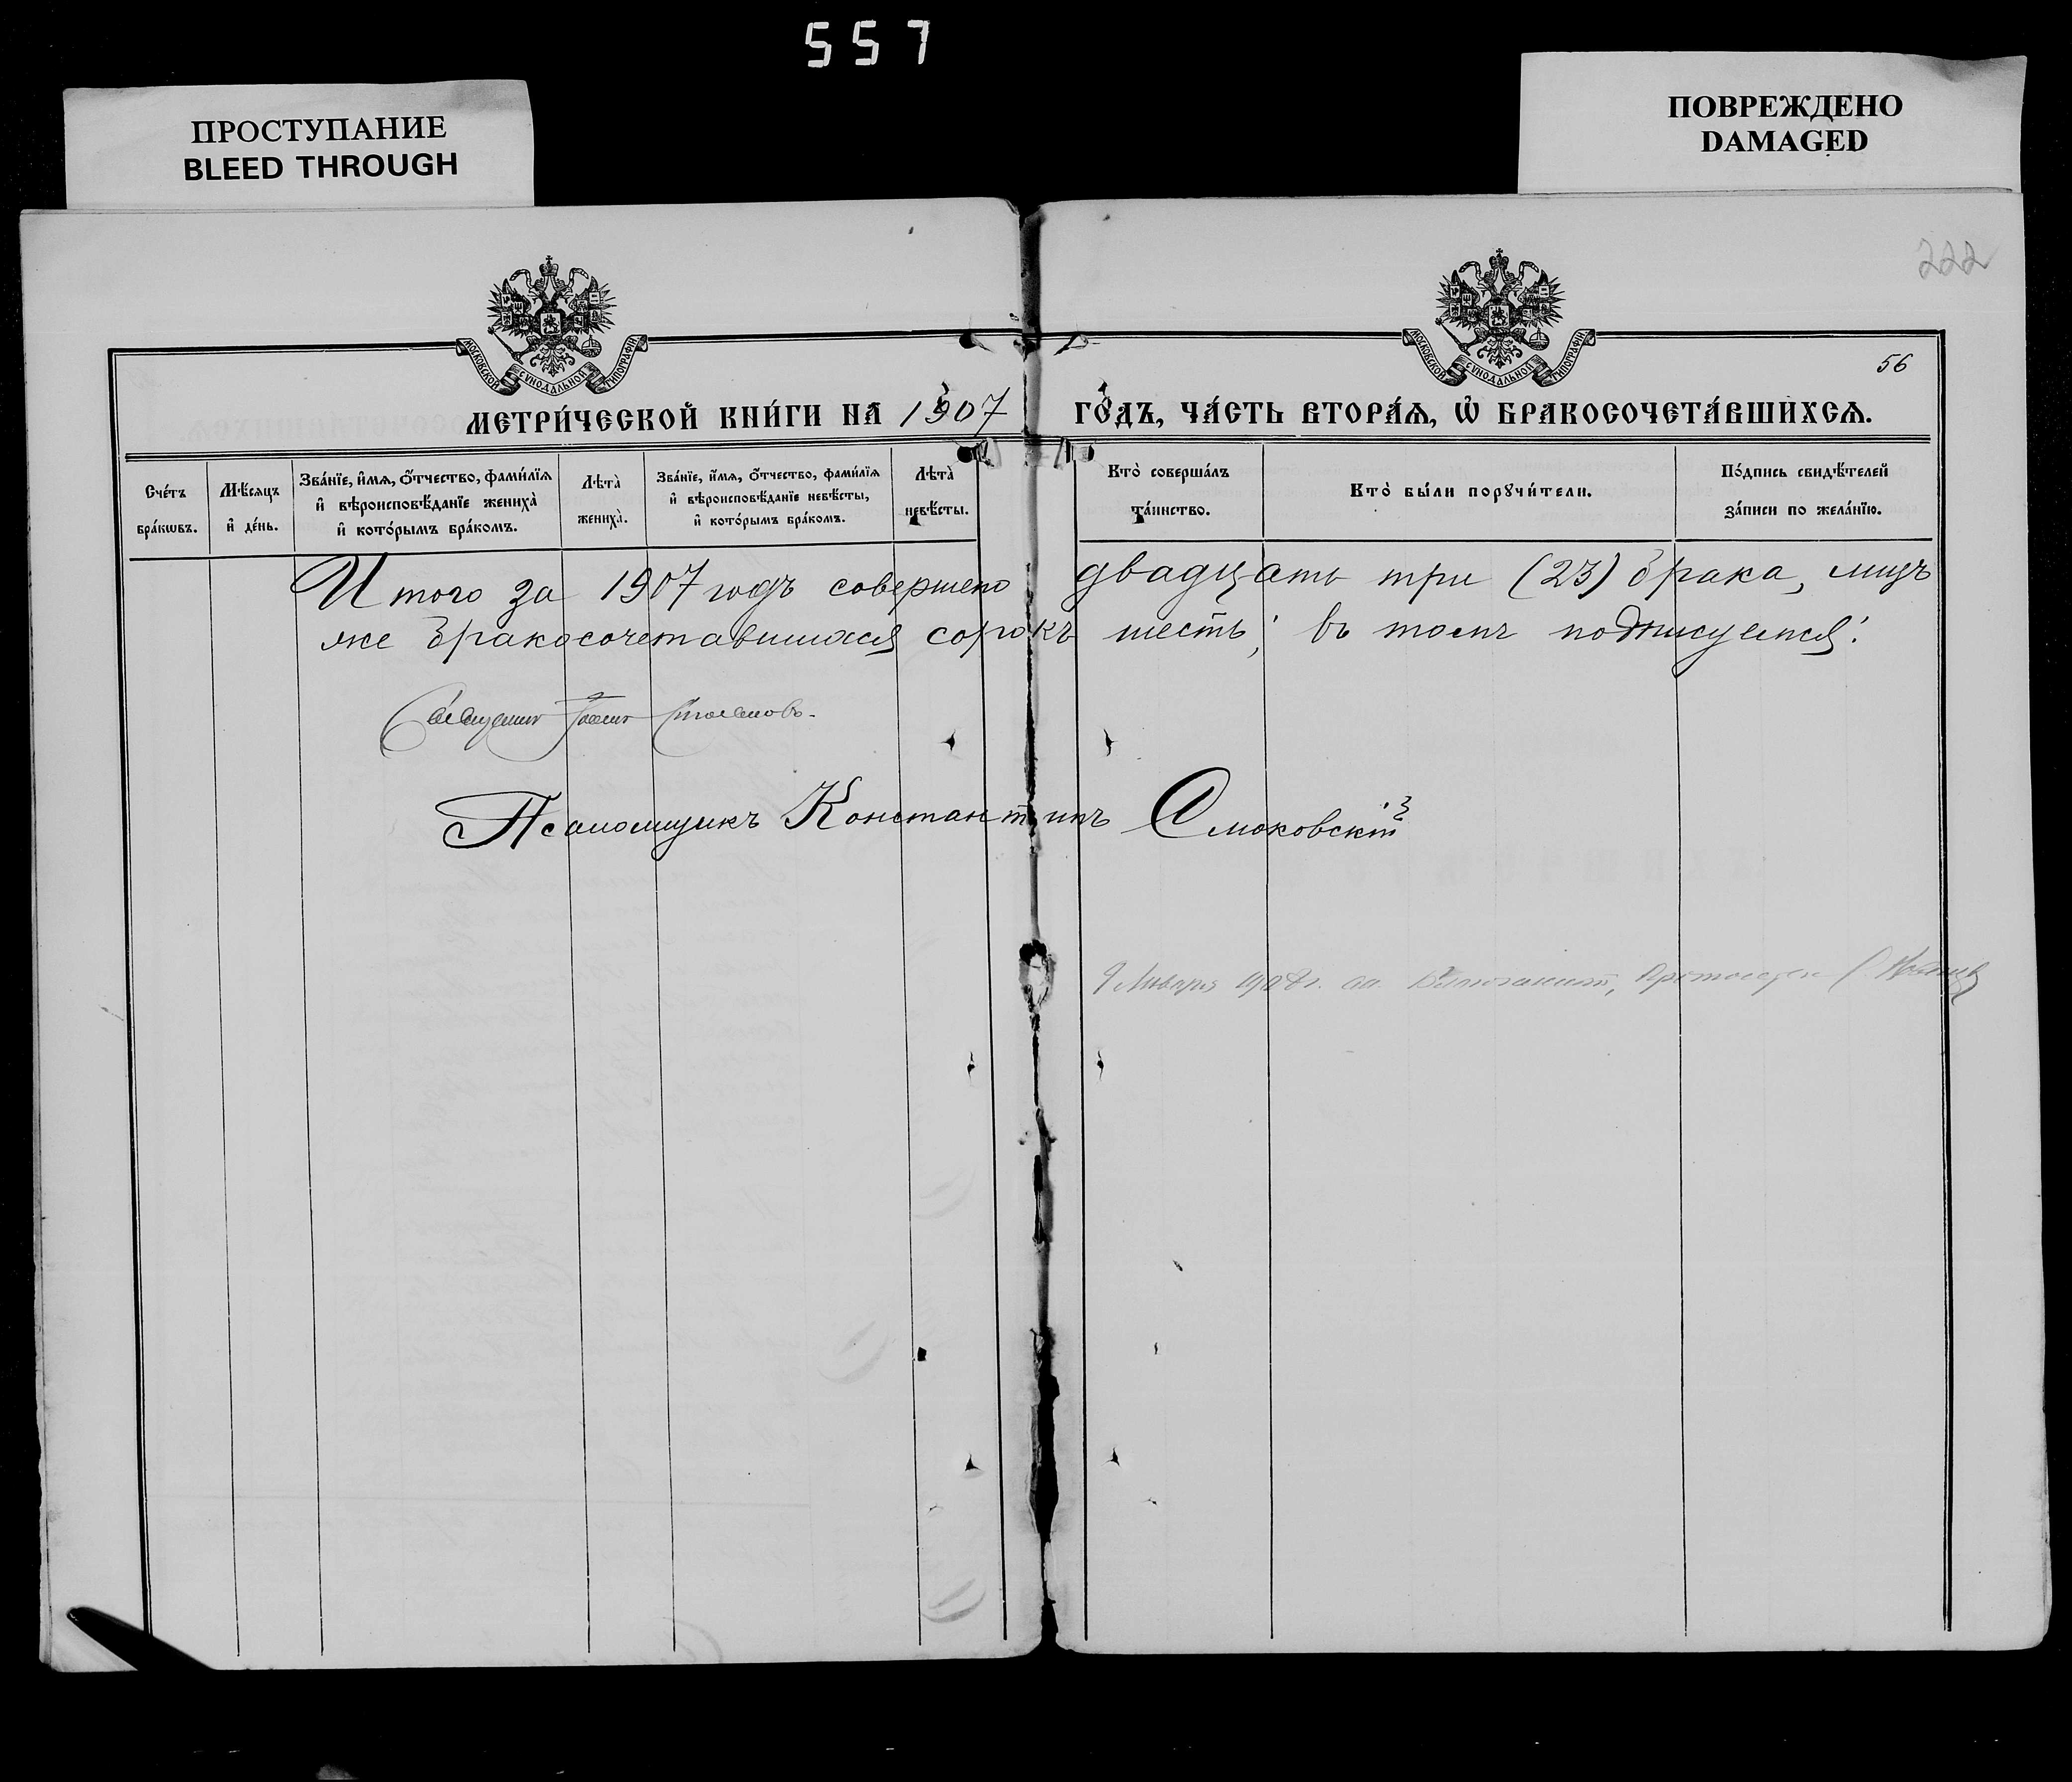 557
ПРОСТУПАНИЕ
BLEED THROUGH
ПОВРЕЖДЕНО
DAMAGED
222
МОСКОВСКОЙ СѴНОДАЛЬНОЙ ТИПОГРАФІИ.
МОСКОВСКОЙ СѴНОДАЛЬНОЙ ТИПОГРАФІИ.
56
МЕТРИ́ЧЕСКОЙ КНИ́ГИ НА̀ 1907 ГО́ДЪ, ЧА́СТЬ ВТОРА́Ѧ, Ѡ҆ БРАКОСОЧЕТА́ВШИХСѦ.
Сче́тъ бра́кѡвъ.
Мѣ́сяцъ и҆ де́нь.
Зва́нїе, и҆́мѧ, ѻ҆́тчество, фами́лїѧ и҆ вѣроисповѣ́данїе жениха̀ и҆ кото́рымъ бра́комъ.
Лѣта̀ жениха̀.
Зва́нїе, и҆́мѧ, ѻ҆́тчество, фами́лїѧ и҆ вѣроисповѣ́данїе невѣ́сты, и҆ кото́рымъ бра́комъ.
Лѣта̀ невѣ́сты.
Кто̀ соверша́лъ та́инство.
Кто̀ бы́ли порꙋчи́тели.
По́дпись свидѣ́телей за́писи по жела́нїю.
Итого за 1907 годъ совершено двадцать три (23) брака, лицъ
же бракосочетавшихся сорокъ шесть; въ томъ подписуемся:
Священникъ Іоаннъ
Псаломщикъ Константинъ Смоковскій
9 Января 1908 г.